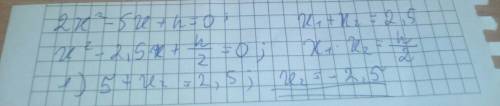 2x² - 5x + n = 0; x₁ + x₂ = 2,5
x² - 2,5x + n/2 = 0; x₁ · x₂ = n/2
1) 5 + x₂ = 2,5; x₂ = -2,5